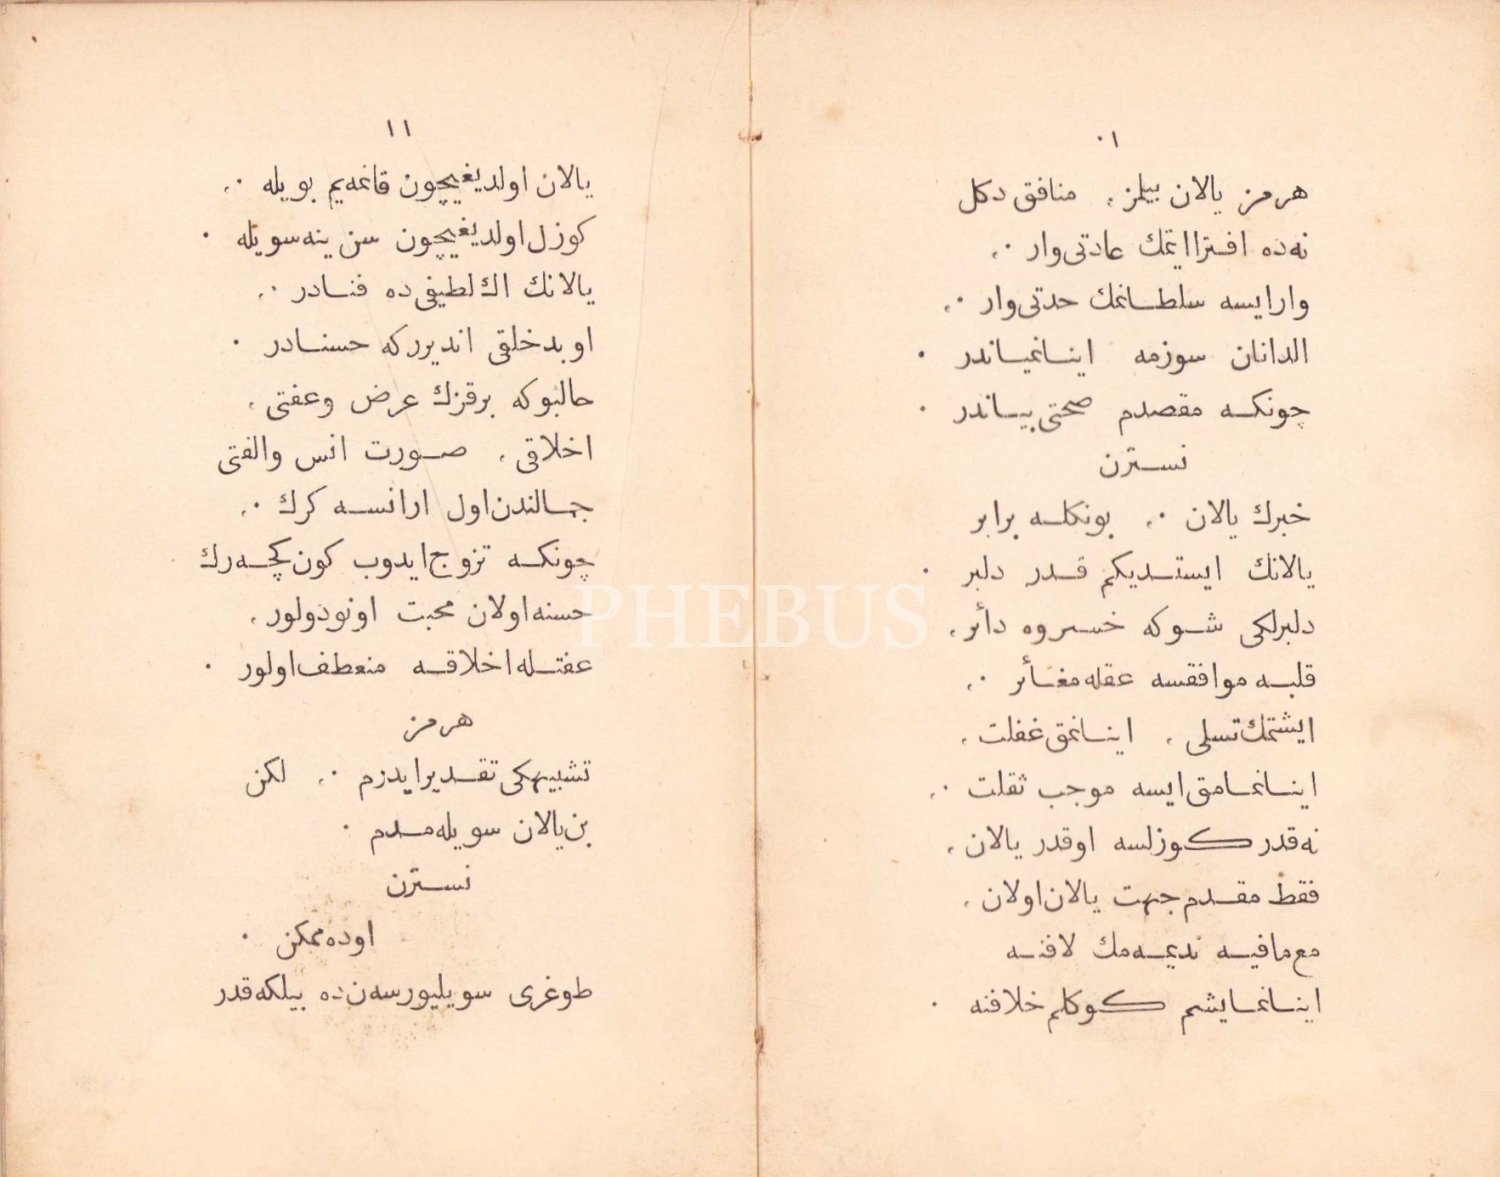 ١٠
هرمز يالان بيلمز، منافق دكل
نه ده افترا ايتمك عادتى وار ٠،
وار ايسه سلطانمك حدتى وار ٠،
الدانان سوزمه اينانمياندر ٠
چونكه مقصدم صحتى بياندر ٠
نسترن
خبرك يالان ٠، بونكله برابر
يالانك ايستديكم قدر دلبر ٠
دلبرلكى شو كه خسروه دأئر،
قلبه موافقسه عقله مغأئر ٠،
ايشتمك تسلى، اينانمق غفلت،
اينانمامق ايسه موجب ثقلت ٠،
نه قدر كوزلسه او قدر يالان،
فقط مقدم جهت يالان اولان،
مع مافيه نديمه مك لافنه
اينانمايشم كوكلم خلافنه ٠
١١
يالان اولديغيچون قانمه يم بويله ٠،
كوزل اولديغيچون سن ينه سويله ٠
يالانك اك لطيفى ده فنادر ٠،
او بدخلقى انديرر كه حسنادر ٠
حالبوكه برقزك عرض وعفتى،
اخلاقى، صورت انس والفتى
جمالندن اول ارانسه كرك ٠،
چونكه تزوج ايدوب كون كچه رك
حسنه اولان محبت اونودولور،
عفتله اخلاقه منعطف اولور ٠
هرمز
تشبيهكى تقدير ايدرم ٠، لكن
بن يالان سويله مدم ٠
نسترن
اوده ممكن ٠
طوغرى سويليورسه ن ده بيلكه قدر
PHEBUS